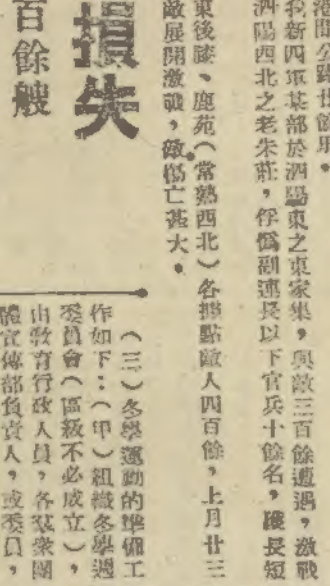 港間公路廿餘里。
我新四軍某部於泗陽東之東家集，與敵三百餘遭遇，激戰
泗陽西北之老朱莊，俘偽副連長以下官兵十餘名，護長短
東後塍、鹿苑（常熟西北）各據點敵人四百餘，上月廿三
敵展開激戰，敵傷亡甚大。
損失
百餘艘
（三）冬學運動的準備工
作如下：（甲）組織冬學運
委員會（區級不必成立），
由教育行政人員，各羣衆團
體宣傳部負責人，或委員，